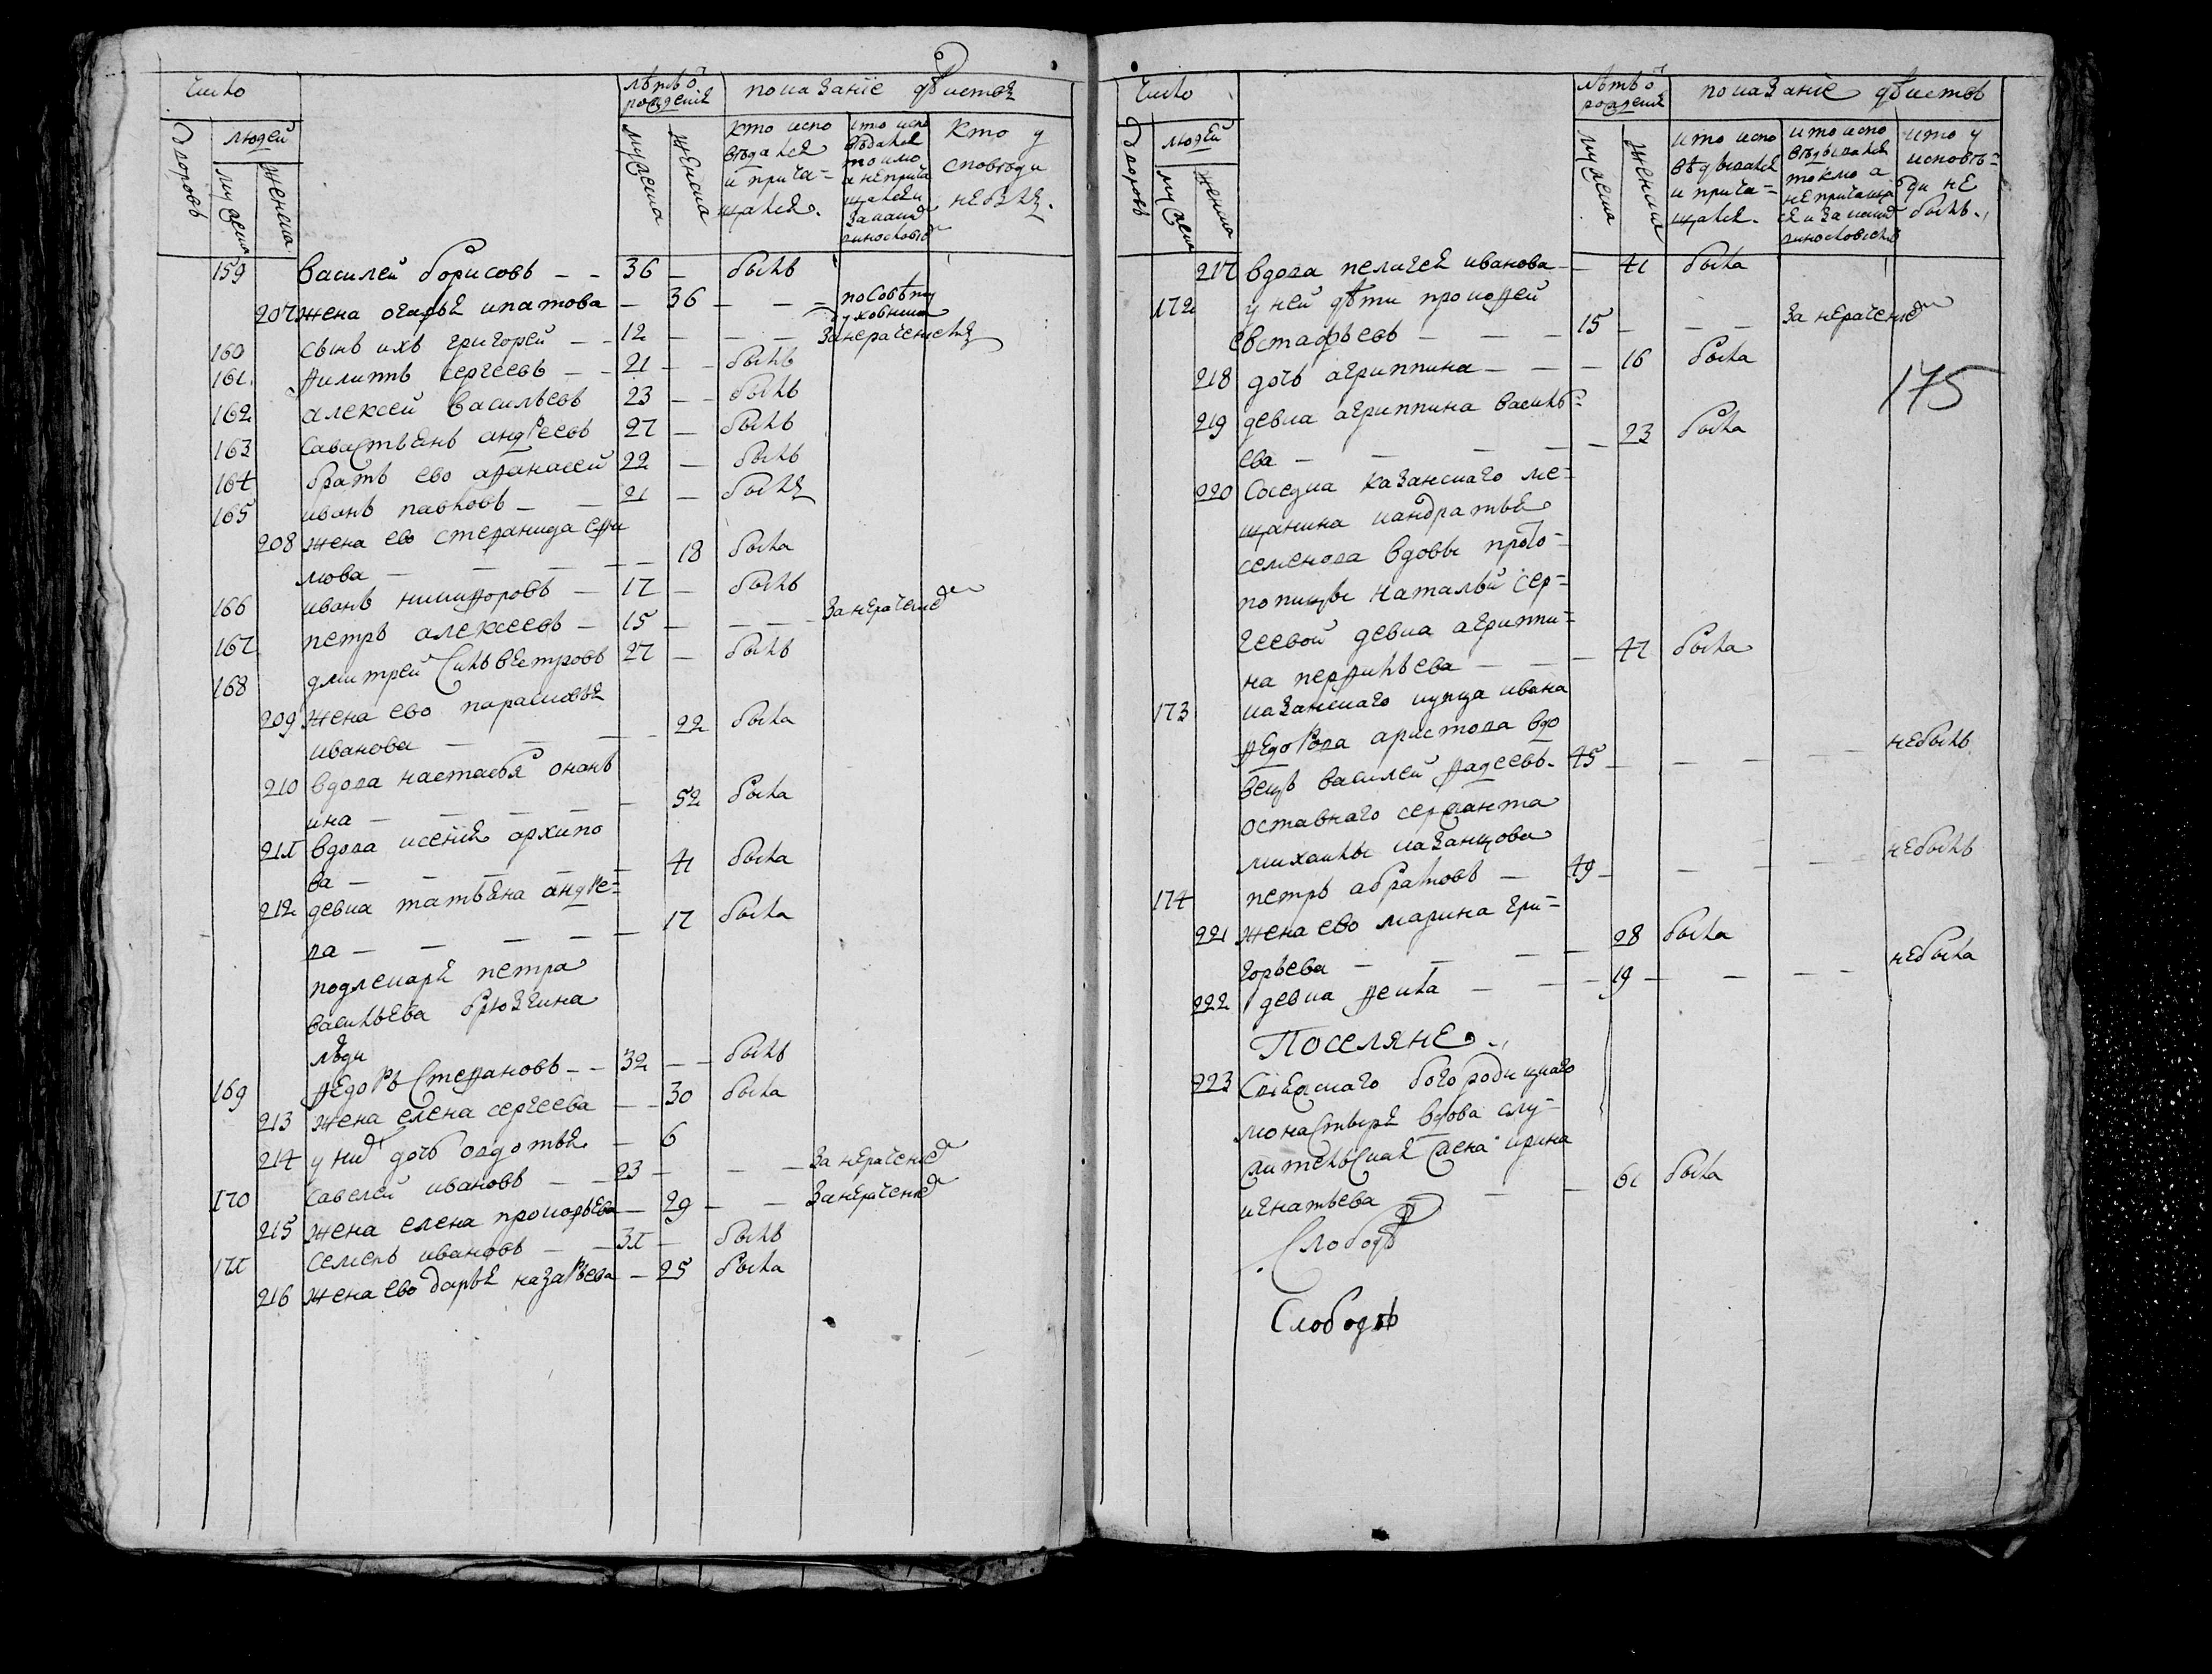 число
лѣтъ ѿ рожденiя
показанiе дѣиства
дворовъ
людей
мужеска
женска
мужеска
женска
кто испо
вѣдался
и прича=
щался.
кто испо
вѣдался
токмо
а не прича
щался и
за каким
винословием
кто у
споведи
небылъ.
159 Василей борисовъ — — 36 — былъ
207 жена ево дарья ипатова — 36 — — — по совѣту духовника
160 сынъ ихъ григорей — — 12 — — — за нерачениемъ
161 филиппъ сергеевъ — — 21 — — былъ
162 алексей васильевъ 23 — — былъ
163 савастьянъ андреевъ 27 — былъ
164 братъ ево афанасей 22 — былъ
165 иванъ павловъ — — 21 — былъ
208 жена ево стефанида ефи
мова — — — — — 18 была
166 иванъ никифоровъ — 17 — былъ
167 петръ алексеевъ — 15 — — — — за нерачением
168 дмитрей Сильвестровъ 27 — былъ
209 жена ево парасковья
иванова — — — 22 была
210 вдова настасья онань
ина — — — — — 52 была
211 вдова ксения архипо
ва — — — — — 41 была
212 девка татьяна андре=
ва — — — — — 17 была
подлекаря петра
васильева брюзгина
люди
169 Федоръ Степановъ — — 32 — — былъ
213 жена елена сергеева — — 30 была
214 у них дочь авдотья — 6
170 савелей ивановъ — — 23 — — — — за нерачением
215 жена елена прокофьева — 29 — — за нерачением
171 семенъ ивановъ — — 31 — былъ
216 жена ево дарья назарьева — 25 была
число
лѣтъ ѿ рожденiя
показанiе дѣиствъ
дворовъ
людей
мужеска
женска
мужеска
женска
кто испо
вѣдывался
и прича=
щался.
кто испо
вѣдывался
токмо а
не причащал
ся и за каким
винословиемъ
кто у
исповѣ=
ди не
былъ.
217 вдова пелагея иванова — — 41 была
172 у ней дѣти прокофей
евстафьевъ — — — 15 — — — за нерачением
218 дочь агриппина — — — 16 была
175
219 девка агриппина василь=
ева — — — — — 23 была
220 Соседка казанскаго ме=
щанина кандратья
семенова вдовы прото=
попицы натальи сер=
геевой девка агриппи=
на перфильева — — — 47 была
173 казанскаго купца ивана
Федорова аристова вдо
вецъ василей Фадеевъ. 45 — — — — — небылъ
оставнаго сержанта
михаилы казанцова
174 петръ абрамовъ — 49 — — — — — небылъ
221 жена ево марина гри=
горьева — — — — 28 была
222 девка Фекла — — — 19 — — — — небыла
Поселяне.
223 Свiяжскаго богородицкаго
монастыря вдова слу=
жительская жена ирина
игнатьева — — 61 была
Слободѣ
Слободѣ